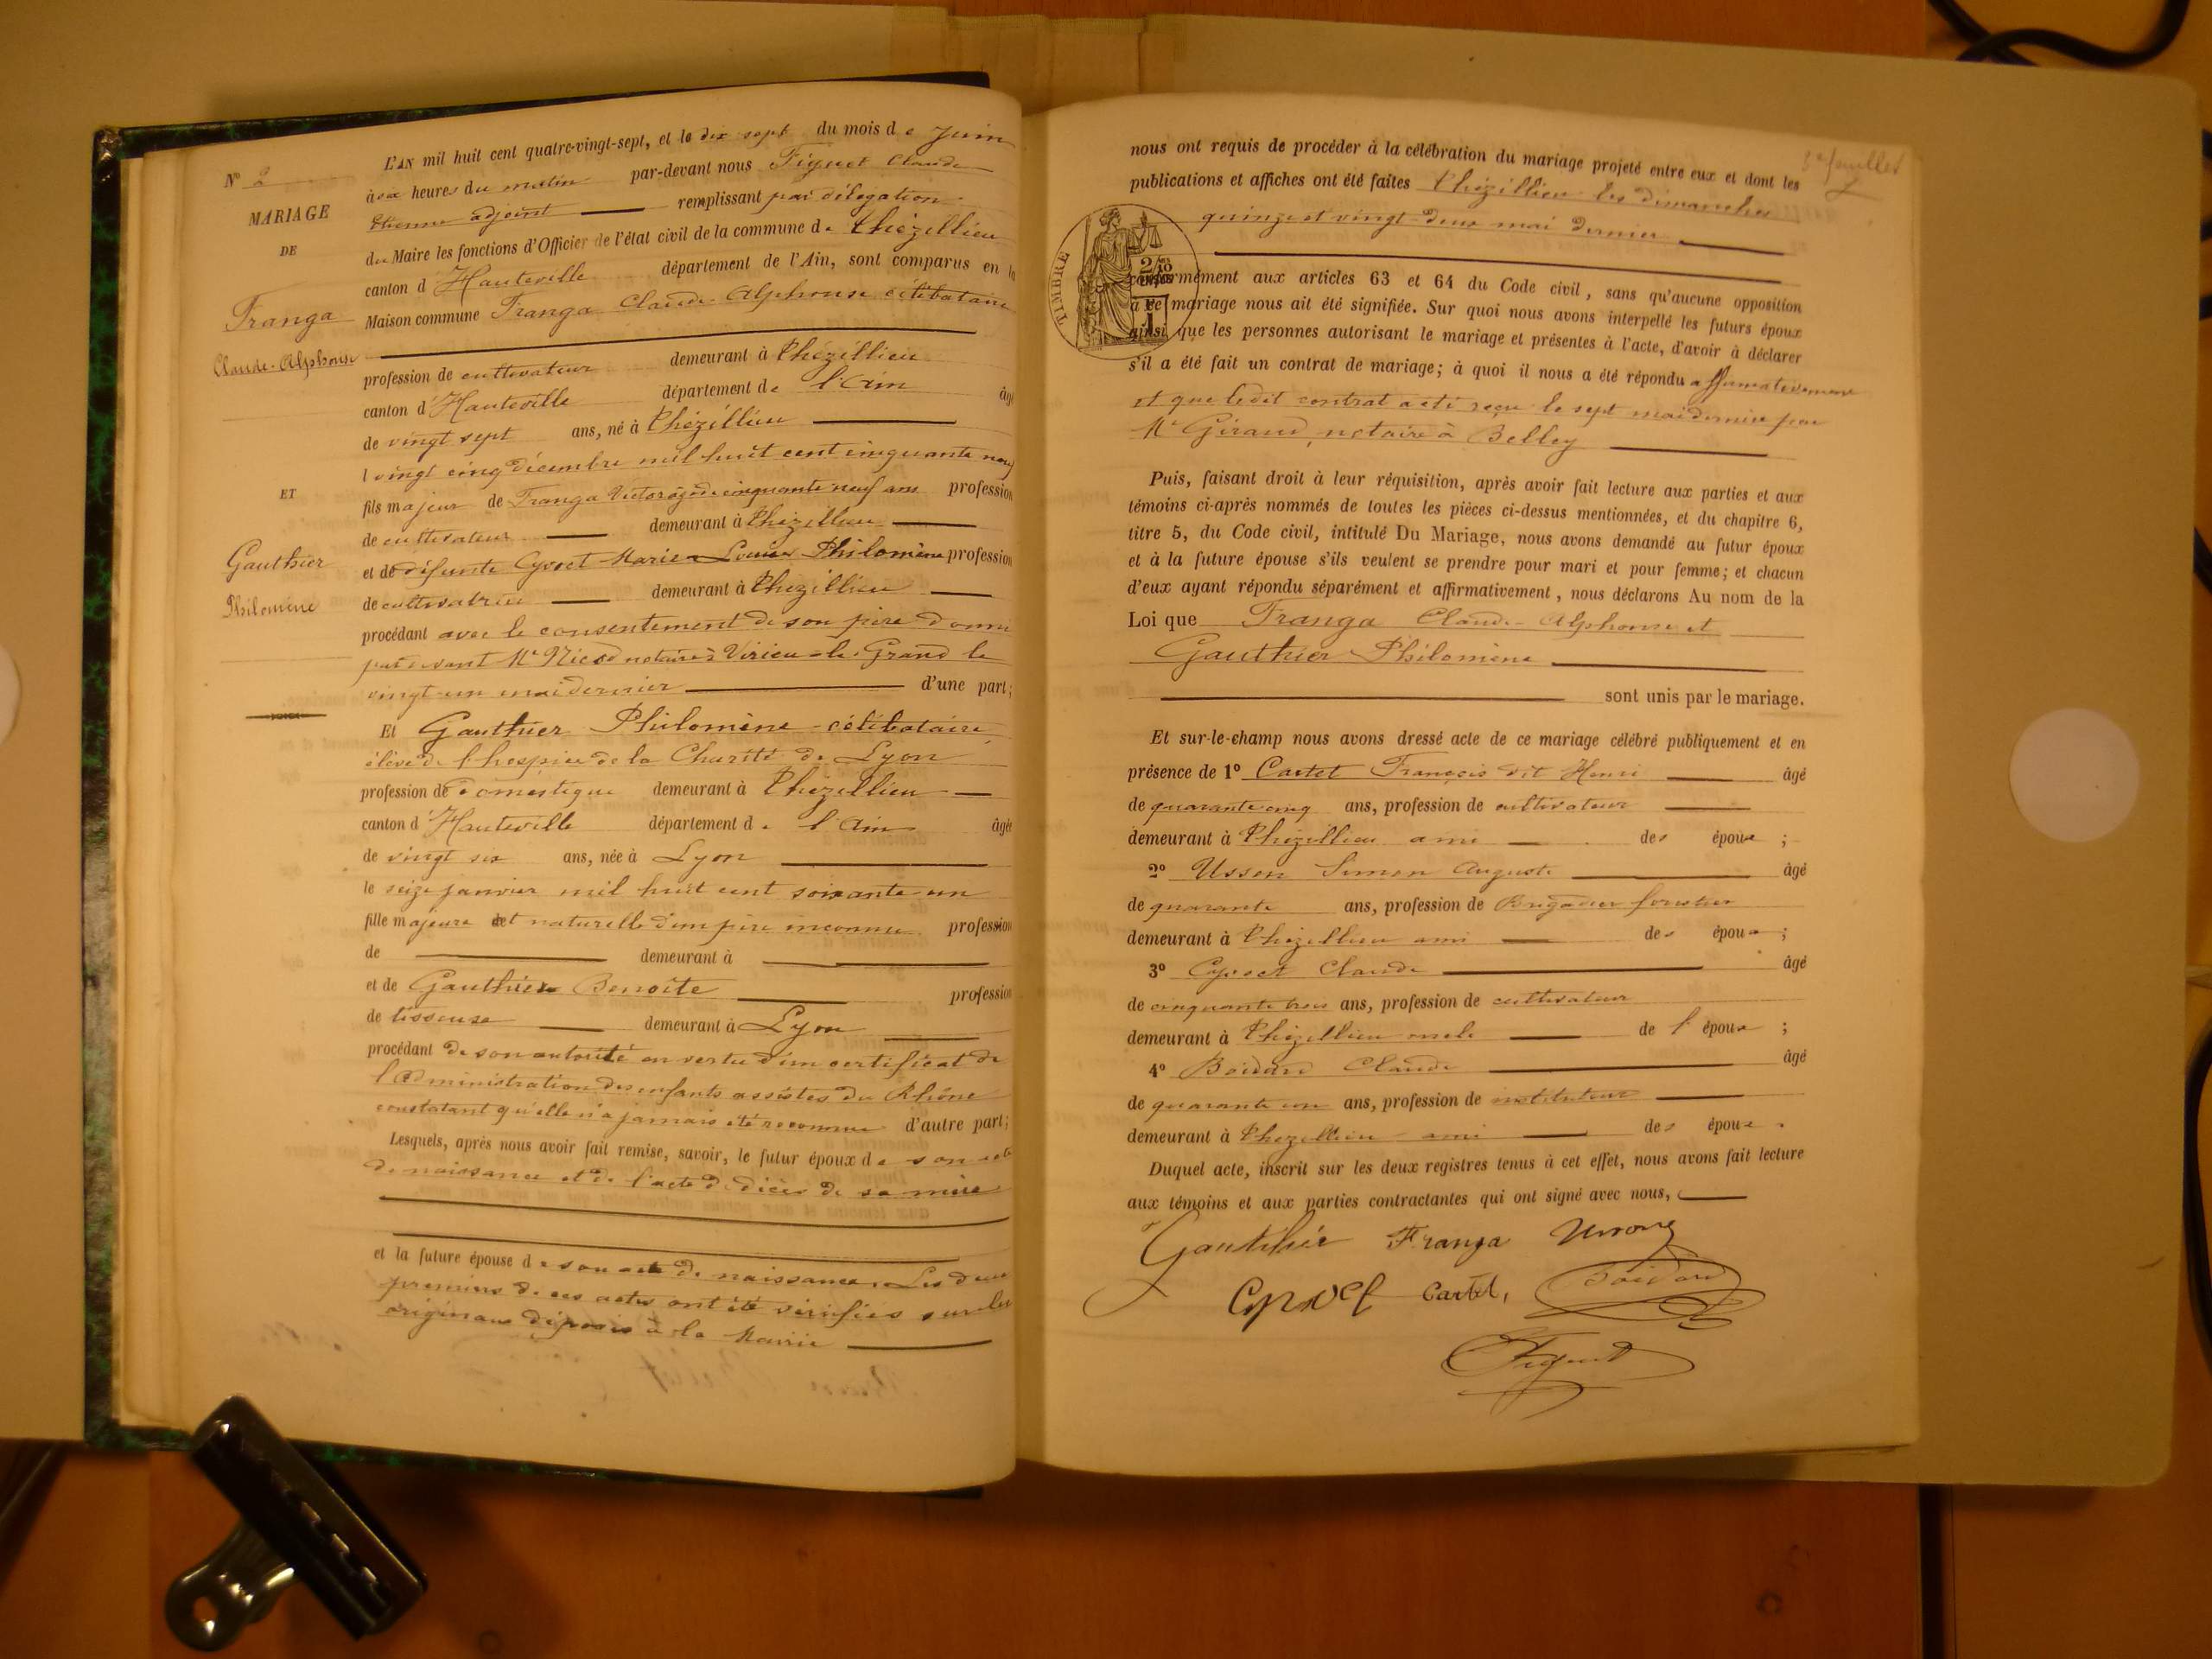 N° 2
MARIAGE
DE
Franga
Claude-Alphonse
ET
Gauthier
Philomène
L'AN mil huit cent quatre-vingt-sept, et le dix sept du mois de Juin
à six heures du matin par-devant nous Figuet Claude
Etienne adjoint remplissant par délégation
du Maire les fonctions d'Officier de l'état civil de la commune de Thézillieu
canton d'Hauteville département de l'Ain, sont comparus en la
Maison commune Franga Claude-Alphonse célibataire
profession de cultivateur demeurant à Thézillieu
canton d'Hauteville département de l'Ain âgé
de vingt sept ans, né à Thézillieu
l vingt cinq décembre mil huit cent cinquante neuf
fils majeur de Franga Victor âgé de cinquante neuf ans profession
de cultivateur demeurant à Thézillieu
et de défunte Cyvoct Marie-Louise Philomène profession
de cultivatrice demeurant à Thézillieu
procédant avec le consentement de son père donné
par devant Me Nicod notaire à Virieu-le-Grand le
vingt-un mai dernier d'une part;
Et Gauthier Philomène célibataire
élève de l'hospice de la Charité de Lyon
profession de domestique demeurant à Thézillieu
canton d'Hauteville département de l'Ain âgée
de vingt six ans, née à Lyon
le seize janvier mil huit cent soixante-un
fille majeure et naturelle d'un père inconnu profession
de demeurant à
et de Gauthier Benoîte profession
de tisseuse demeurant à Lyon
procédant de son autorité en vertu d'un certificat de
l'administration des enfants assistés du Rhône
constatant qu'elle n'a jamais été reconnue d'autre part;
Lesquels, après nous avoir fait remise, savoir, le futur époux de son acte
de naissance et de l'acte de décès de sa mère
et la future épouse de son acte de naissance. Les deux
premiers de ces actes ont été vérifiés sur les
originaux déposés à la Mairie
3e feuillet
nous ont requis de procéder à la célébration du mariage projeté entre eux et dont les
publications et affiches ont été faites Thézillieu les dimanches
quinze et vingt-deux mai dernier
TIMBRE
2/10
conformément aux articles 63 et 64 du Code civil, sans qu'aucune opposition
à ce mariage nous ait été signifiée. Sur quoi nous avons interpellé les futurs époux
ainsi que les personnes autorisant le mariage et présentes à l'acte, d'avoir à déclarer
s'il a été fait un contrat de mariage; à quoi il nous a été répondu affirmativement
et que ledit contrat a été reçu le sept mai dernier par
Me Giraud, notaire à Belley
Puis, faisant droit à leur réquisition, après avoir fait lecture aux parties et aux
témoins ci-après nommés de toutes les pièces ci-dessus mentionnées, et du chapitre 6,
titre 5, du Code civil, intitulé Du Mariage, nous avons demandé au futur époux
et à la future épouse s'ils veulent se prendre pour mari et pour femme; et chacun
d'eux ayant répondu séparément et affirmativement, nous déclarons Au nom de la
Loi que Franga Claude-Alphonse et
Gauthier Philomène
sont unis par le mariage.
Et sur-le-champ nous avons dressé acte de ce mariage célébré publiquement et en
présence de 1° Cartet François dit Henri âgé
de quarante cinq ans, profession de cultivateur
demeurant à Thézillieu ami des époux ;
2° Usson Simon Auguste âgé
de quarante ans, profession de Brigadier forestier
demeurant à Thézillieu ami des époux ;
3° Cyvoct Claude âgé
de cinquante trois ans, profession de cultivateur
demeurant à Thézillieu oncle de l'époux ;
4° Boidard Claude âgé
de quarante un ans, profession de instituteur
demeurant à Thézillieu ami des époux .
Duquel acte, inscrit sur les deux registres tenus à cet effet, nous avons fait lecture
aux témoins et aux parties contractantes qui ont signé avec nous,
Gautihié Franga
Cyvoct Cartet, Boidard
Figuet